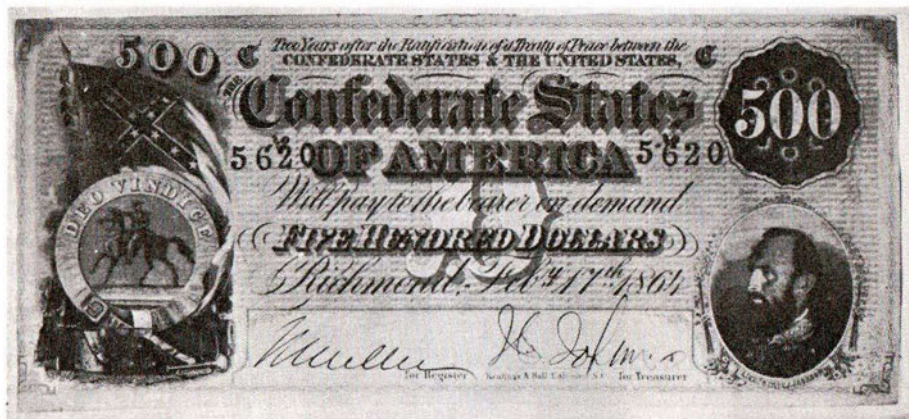 500
C Two Years after the Ratification of a Treaty of Peace between the C
CONFEDERATE STATES & THE UNITED STATES,
THE
Confederate States
500
No 5620 OF AMERICA No 5620
Will pay to the bearer on demand
DEO VINDICE
FIVE HUNDRED DOLLARS
Richmond, Feby. 17th 1864
for Register Keatinge & Ball, Columbia, S.C. for Treasurer